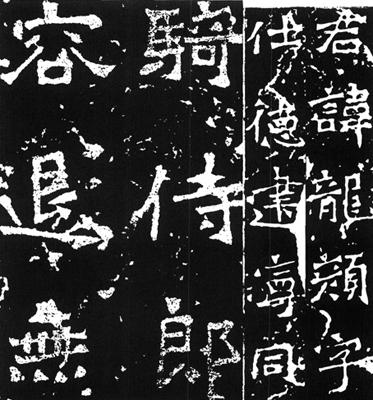 君諱龍顏字
仕德建寧同
騎侍郎
容退無